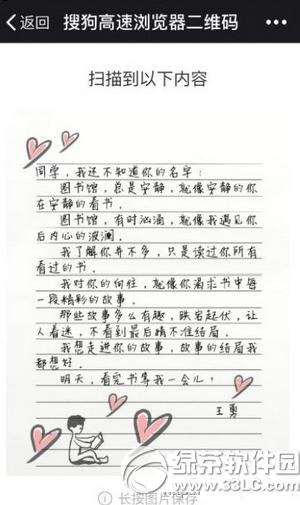 返回 搜狗高速浏览器二维码
扫描到以下内容
同学,我还不知道你的名字:
图书馆,总是安静,就像安静的你
在安静的看书.
图书馆,有时汹涌,就像我遇见你
后内心的波澜.
我了解你并不多,只是读过你所有
看过的书.
我对你的向往,就像你渴求书中每
一段精彩的故事.
那些故事多么有趣,跌宕起伏,让
人着迷,不看到最后猜不准结局.
我想走进你的故事,故事的结局我
都想好.
明天,看完书等我一会儿?
王勇
绿茶软件园
www.33LC.com
长按图片保存